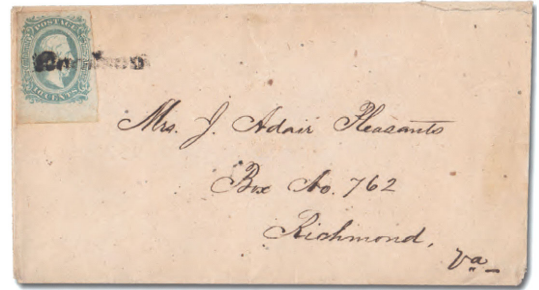 POSTAGE
TEN CENTS
Mrs. J. Adair Pleasants
Box No. 762
Richmond,
Va